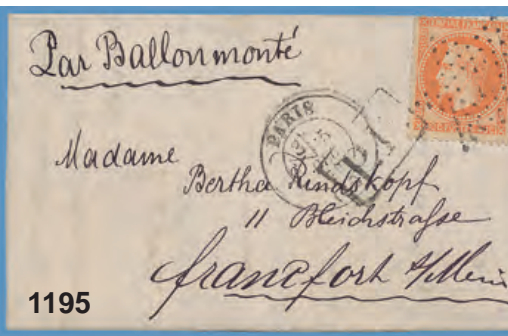 Par Ballon monté
PARIS
PD
Madame
Bertha Rindskopf
11 Bleichstraße
francfort s/Mein
1195